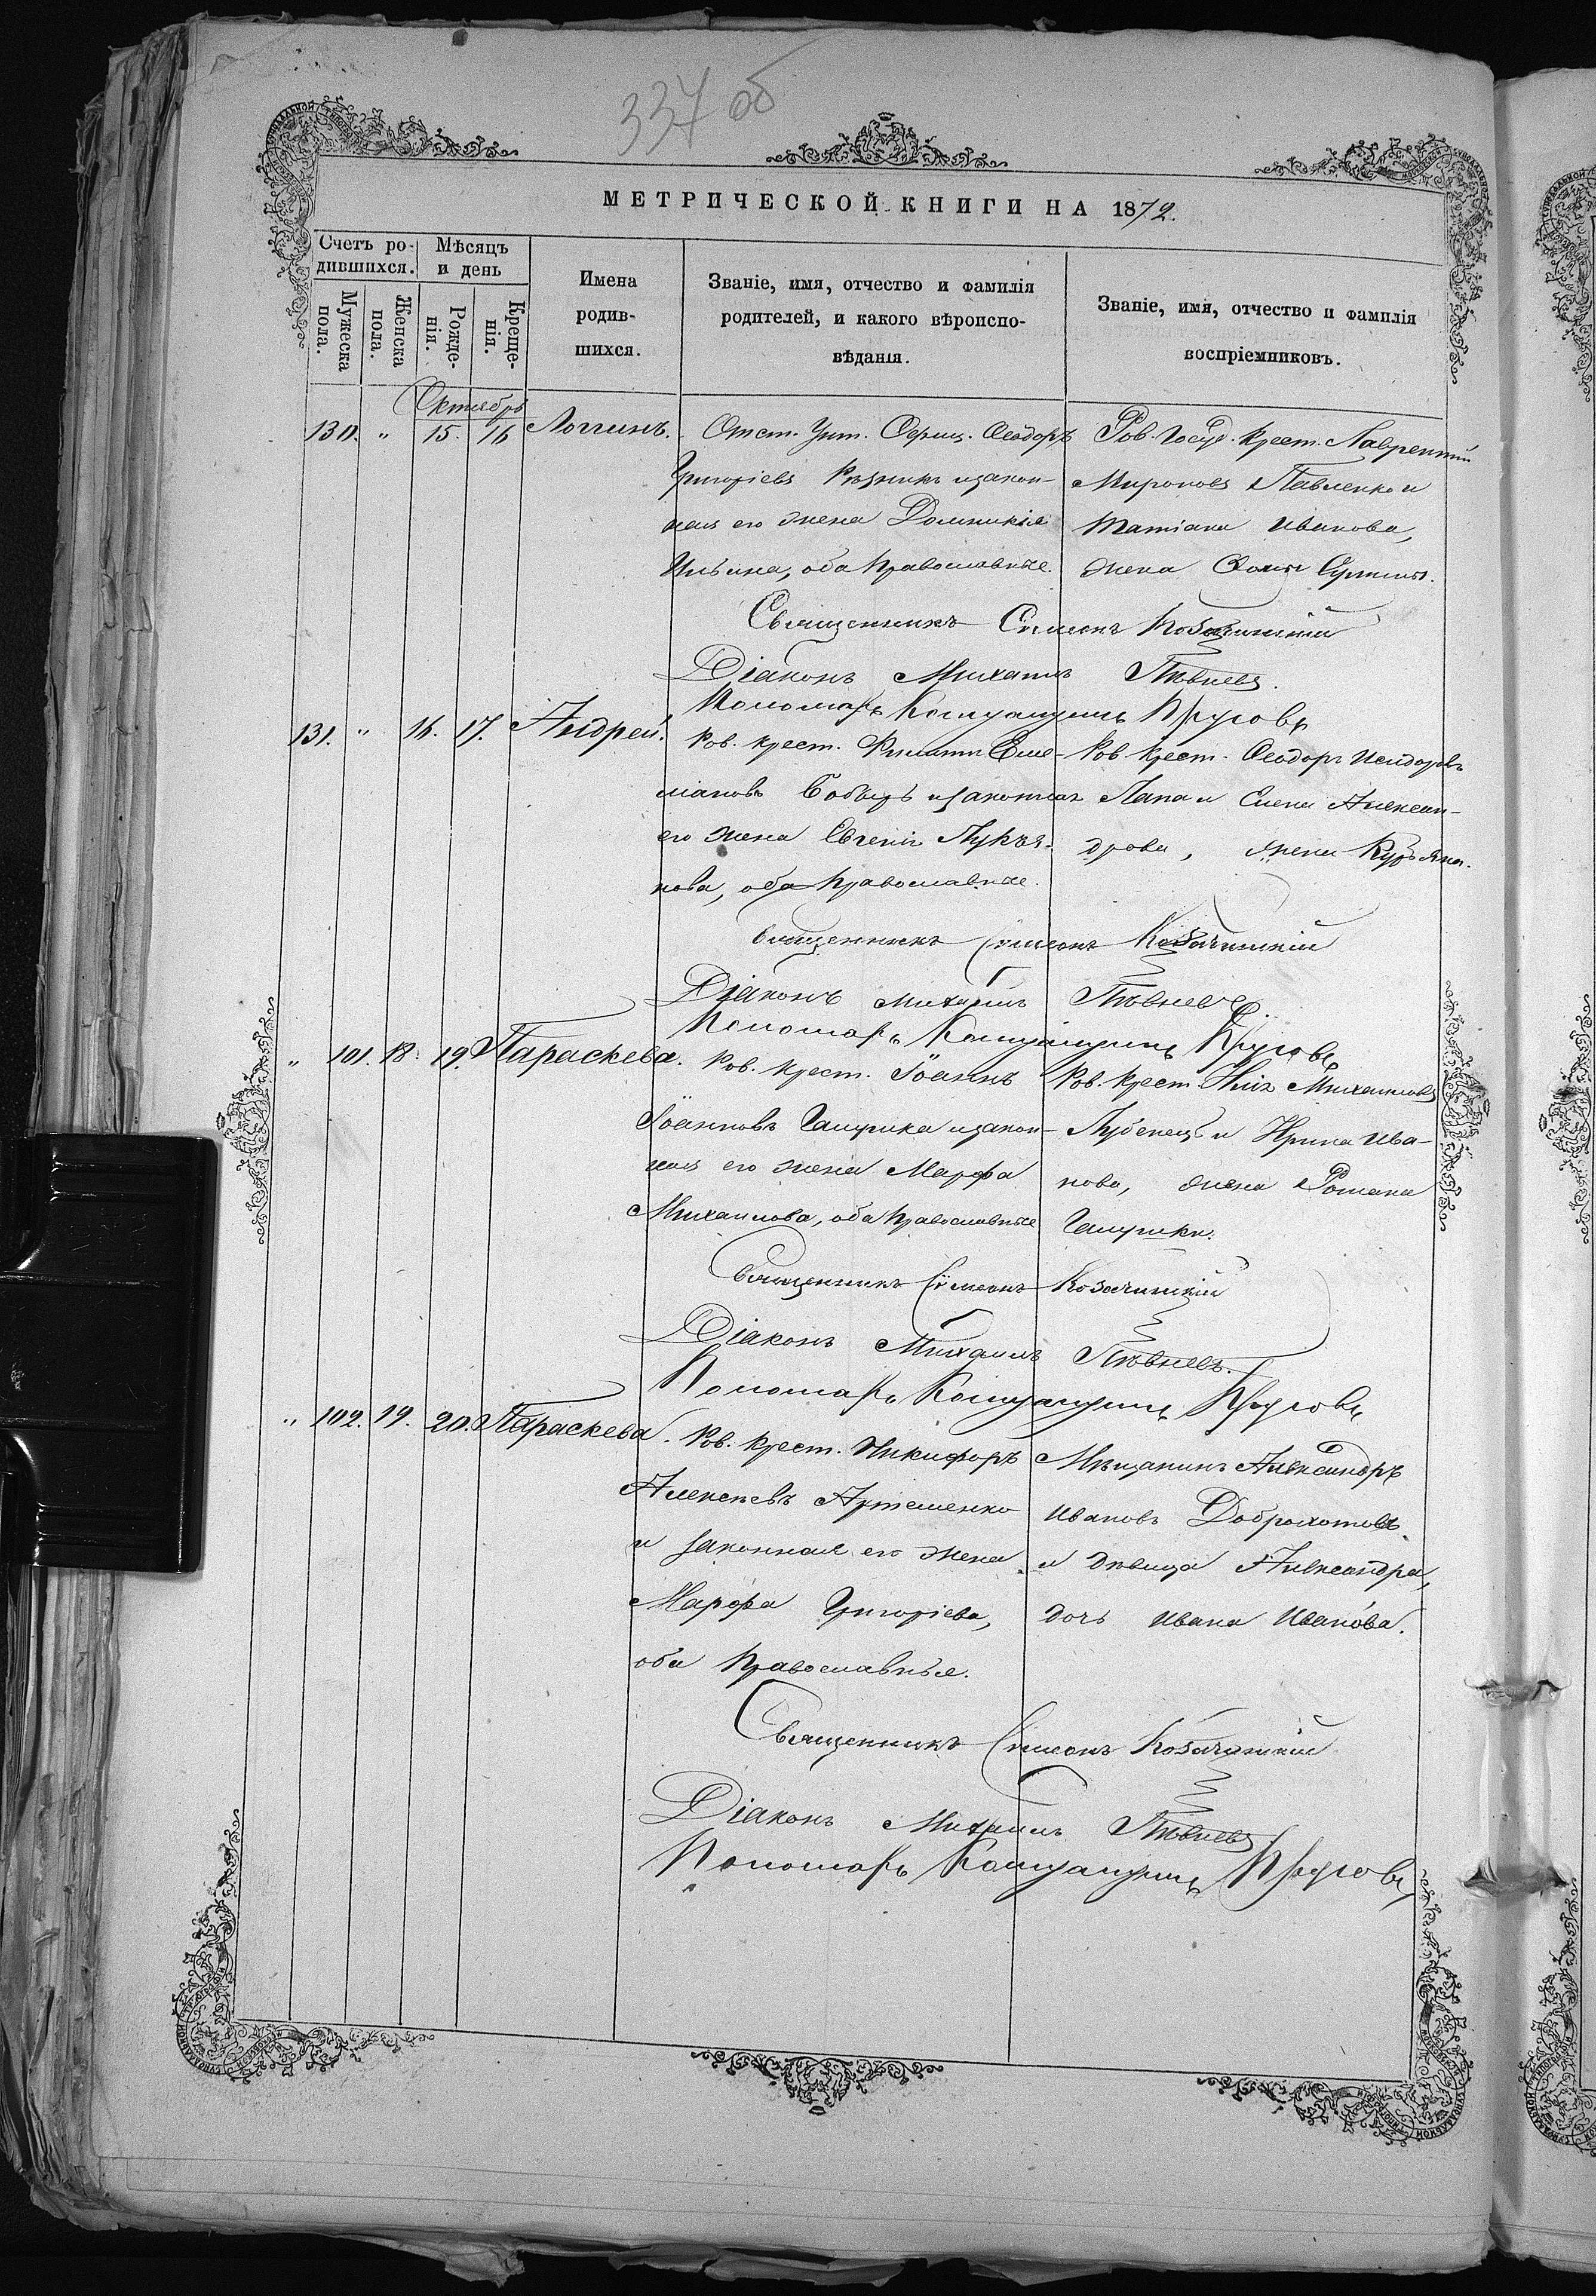 337 об
МЕТРИЧЕСКОЙ КНИГИ НА 1872.
Счетъ ро-
дившихся.
Мѣсяцъ
и день
Мужеска
пола.
Женска
пола.
Рожде-
нія.
Креще-
нія.
Имена
родив-
шихся.
Званіе, имя, отчество и фамилія
родителей, и какого вѣроиспо-
вѣданія.
Званіе, имя, отчество и фамилія
воспріемниковъ.
Октябрь
130. " 15. 16 Логгинъ.
Отст. Унт. Офриц. Ѳеодоръ
Григоріевъ Рѣзникъ и закон-
ная его жена Домникія
Ильина, оба православные.
Ров. Госуд. Крест. Лаврентій
Мироновъ Павленко и
Татіана Иванова,
жена Ѳомы
Священникъ Симеонъ Козачинскій
Діаконъ Михаилъ Пѣвневъ.
Пономарь Круговъ
131. " 16. 17. Андрей.
Ров. крест. Филиппъ Еме-
ліановъ Бобырь и законная
его жена Евгенія Лукья-
нова, оба православные.
Ров. Крест. Ѳеодоръ Исидоровъ
Лапа и Елена Алексан-
дрова, жена
Священникъ Симеонъ Козачинскій
Діаконъ Михаилъ Пѣвневъ.
Пономарь Круговъ
" 101. 18. 19. Параскева.
Ров. крест. Іоаннъ
Іоанновъ Гащрика и закон-
ная его жена Марфа
Михаилова, оба православные
Ров. крест. Илія Михаиловъ
Лубенецъ и Ирина Ива-
нова, жена Романа
Священникъ Симеонъ Козачинскій
Діаконъ Михаилъ Пѣвневъ.
Пономарь Круговъ
" 102. 19. 20. Параскева.
Ров. крест. Никифоръ
Алексѣевъ Артеменко
и законная его жена
Марфа Григоріева,
оба православные.
Мѣщанинъ Александръ
Ивановъ Доброхотовъ
и дѣвица Александра,
дочь Ивана Иванова.
Священникъ Симеонъ Козачинскій
Діаконъ Михаилъ Пѣвневъ.
Пономарь Круговъ